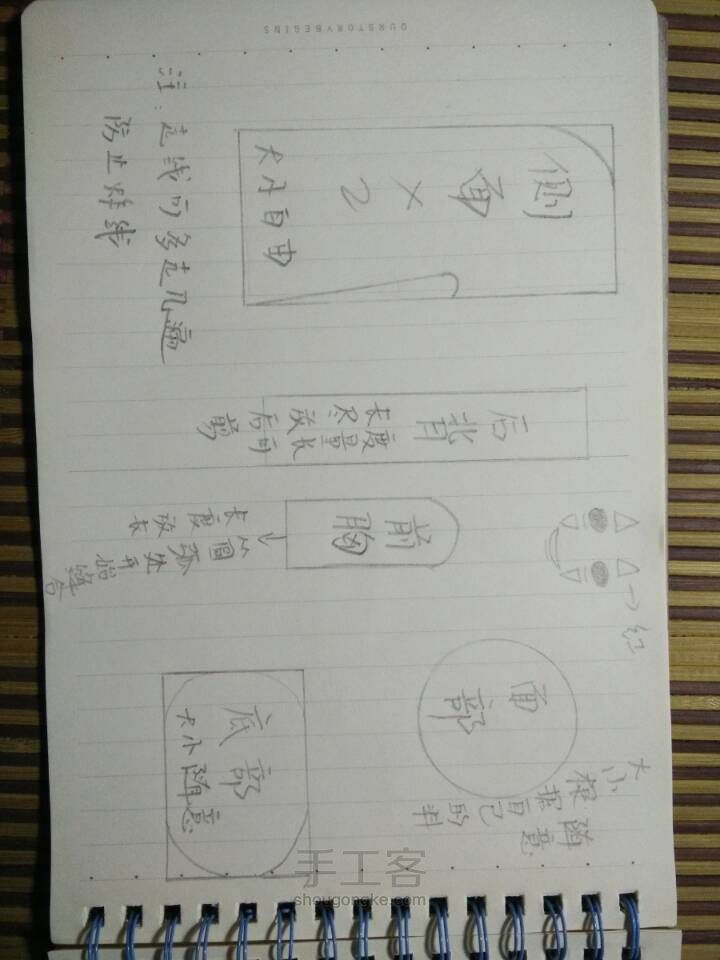 →红
大小随意
根据自己的料
侧面×2
大小自由
后背
长度
尽量
放长
后可
剪
前胸
长度放长
从圆弧处开始缝合
面部
底部
大小随意
注：走线可多走几遍
防止
OURSTORYBEGINS
手工客
shougongke.com